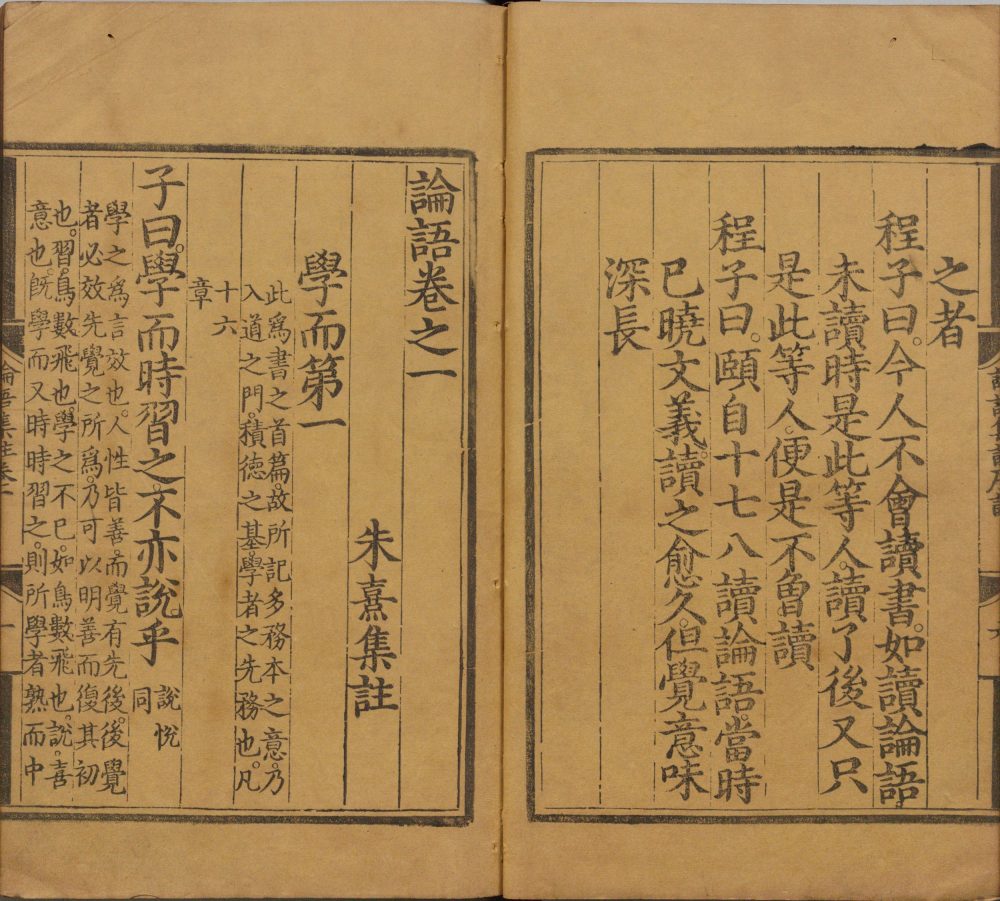 之者
程子曰。今人不會讀書。如讀論語
未讀時是此等人。讀了後又只
是此等人。便是不曾讀
程子曰。頤自十七八讀論語。當時
已曉文義。讀之愈久。但覺意味
深長
論語卷之一
朱熹集註
學而第一
此爲書之首篇。故所記多務本之意。乃
入道之門。積德之基。學者之先務也。凡
十六
章
子曰。學而時習之。不亦說乎
說悅
同
學之爲言效也。人性皆善。而覺有先後。後覺
者必效先覺之所爲。乃可以明善而復其初
也。習。鳥數飛也。學之不已。如鳥數飛也。說。喜
意也。旣學而又時時習之。則所學者熟而中
論語集註卷一